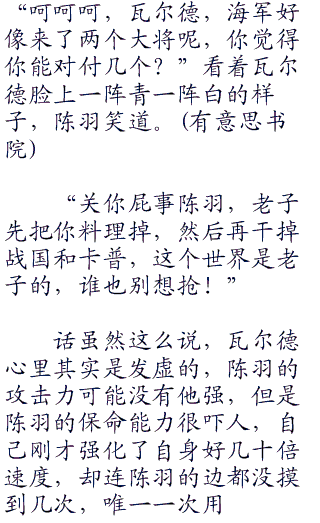 “呵呵呵，瓦尔德，海军好
像来了两个大将呢，你觉得
你能对付几个？” 看着瓦尔
德脸上一阵青一阵白的样
子，陈羽笑道。 (有意思书
院)
“关你屁事陈羽，老子
先把你料理掉，然后再干掉
战国和卡普，这个世界是老
子的，谁也别想抢！”
话虽然这么说，瓦尔德
心里其实是发虚的，陈羽的
攻击力可能没有他强，但是
陈羽的保命能力很吓人，自
己刚才强化了自身好几十倍
速度，却连陈羽的边都没摸
到几次，唯一一次用